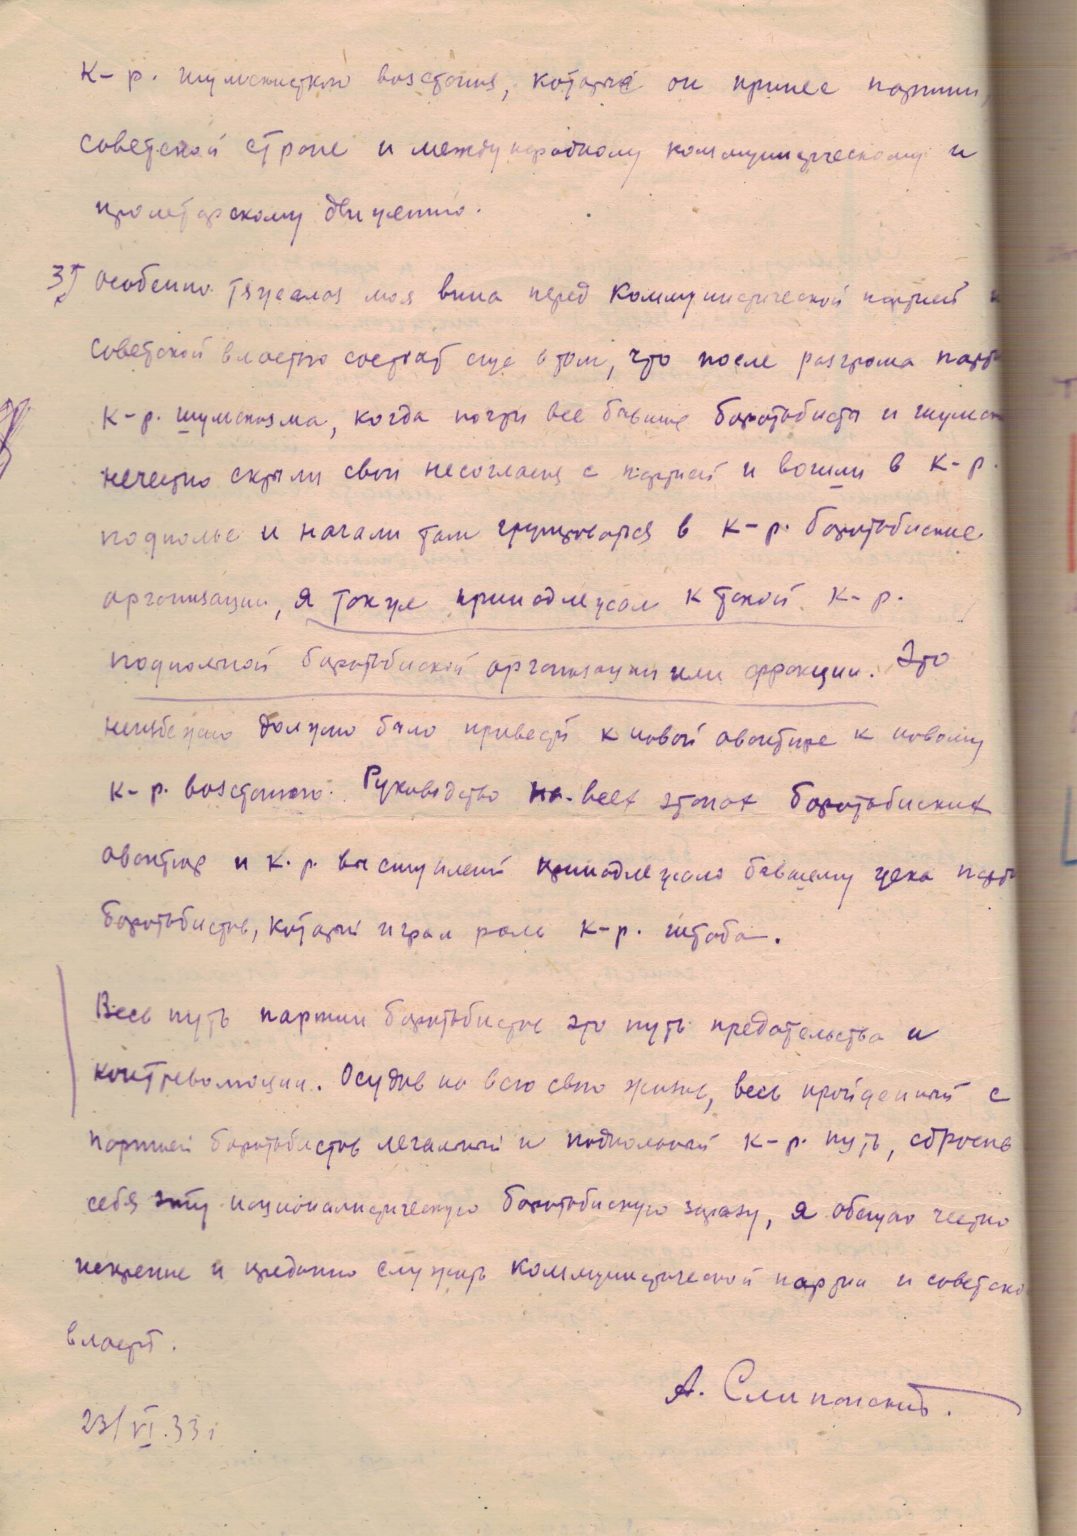 к-р. шумскистского восстания, который он принес партии,
советской стране и международному коммунистическому и
пролетарскому движению.
3) Особенно тяжелая моя вина перед Коммунистической партией и
советской властью состоит еще в том, что после разгрома
к-р. шумскизма, когда почти все бывшие боротьбисты и
нечестно скрыли свои несогласия с партией и вошли в к-р.
подполье и начали там группироваться в к-р. боротьбиские
организации, я также принадлежал к такой к-р.
подпольной боротьбиской организации или фракции. Это
неизбежно должно было привести к новой авантюре к новому
к-р. восстанию. Руководство на всех этапах боротьбиских
авантюр и к.р. выступлений принадлежало бывшему цека
боротьбистов, который играл роль к-р. штаба.
Весь путь партии боротьбистов это путь предательства и
контрреволюции. Осудив на всю свою жизнь, весь пройденный с
партией боротьбистов легальный и подпольный к-р. путь, сбросив
себя эту националистическую боротьбискую заразу, я обещаю честно
искренне и преданно служить коммунистической партии и
власти.
А. Слипанский.
23/VI.33